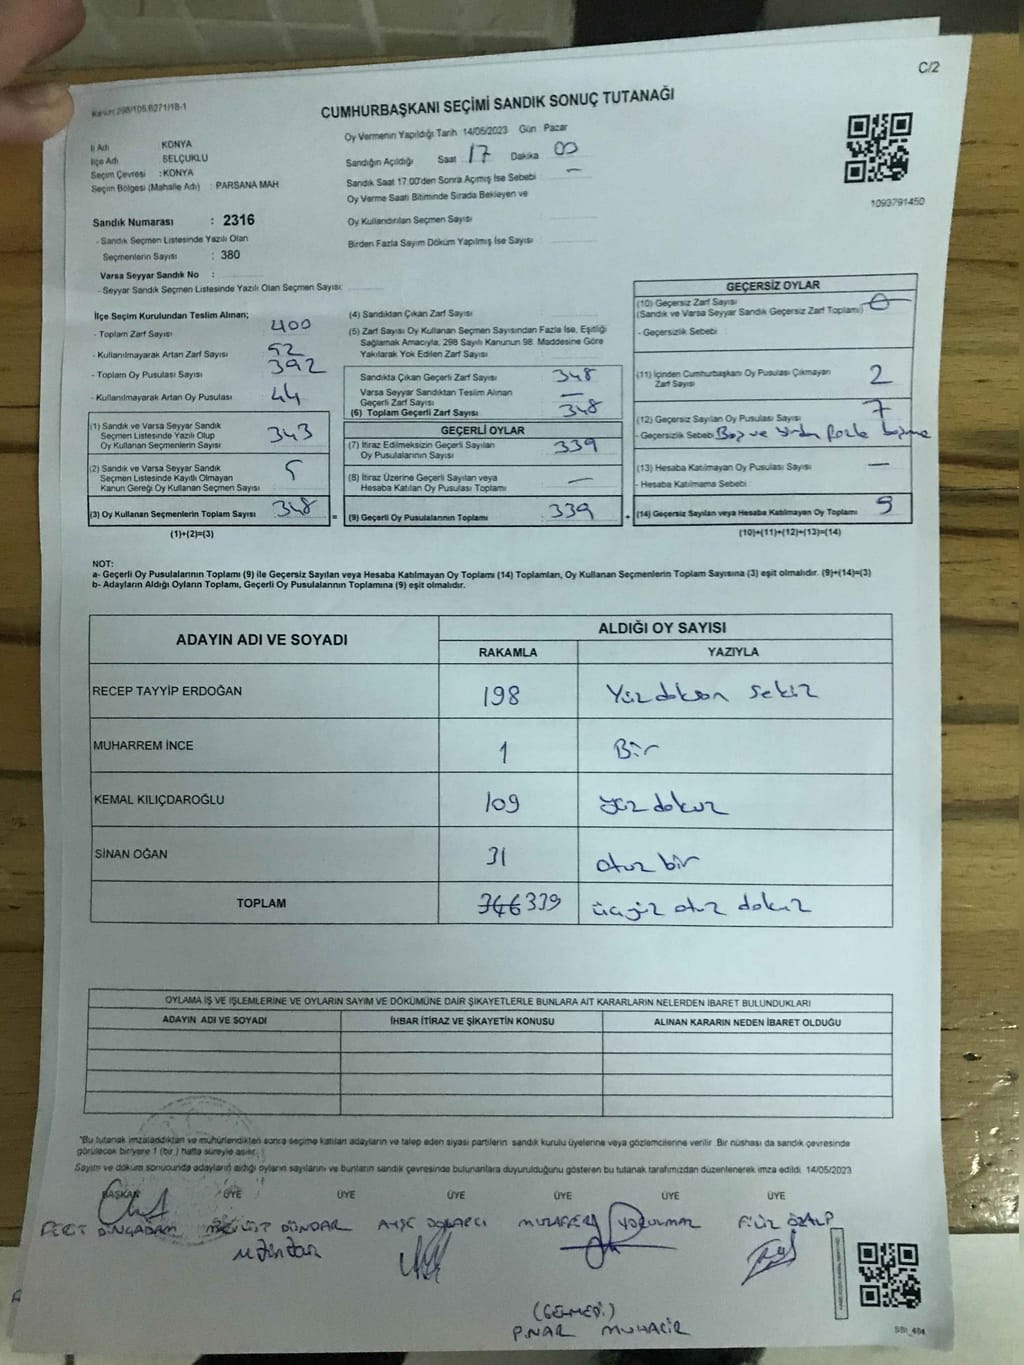 C/2
Kanun: 298/105.6271/18-1
CUMHURBAŞKANI SEÇİMİ SANDIK SONUÇ TUTANAĞI
İl Adı KONYA
İlçe Adı SELÇUKLU
Seçim Çevresi : KONYA
Seçim Bölgesi (Mahalle Adı) : PARSANA MAH
Sandık Numarası : 2316
- Sandık Seçmen Listesinde Yazılı Olan
Seçmenlerin Sayısı : 380
Varsa Seyyar Sandık No :
- Seyyar Sandık Seçmen Listesinde Yazılı Olan Seçmen Sayısı:
Oy Vermenin Yapıldığı Tarih 14/05/2023 Gün Pazar
Sandığın Açıldığı Saat 17 Dakika 00
Sandık Saat 17.00'den Sonra Açımış İse Sebebi —
Oy Verme Saati Bitiminde Sırada Bekleyen ve
Oy Kullandırılan Seçmen Sayısı
Birden Fazla Sayım Döküm Yapılmış İse Sayısı
1093791450
İlçe Seçim Kurulundan Teslim Alınan;
- Toplam Zarf Sayısı 400
- Kullanılmayarak Artan Zarf Sayısı 52
- Toplam Oy Pusulası Sayısı 392
- Kullanılmayarak Artan Oy Pusulası 44
(1) Sandık ve Varsa Seyyar Sandık
Seçmen Listesinde Yazılı Olup
Oy Kullanan Seçmenlerin Sayısı 343
(2) Sandık ve Varsa Seyyar Sandık
Seçmen Listesinde Kayıtlı Olmayan
Kanun Gereği Oy Kullanan Seçmen Sayısı 5
(3) Oy Kullanan Seçmenlerin Toplam Sayısı 348
(1)+(2)=(3)
(4) Sandıktan Çıkan Zarf Sayısı
(5) Zarf Sayısı Oy Kullanan Seçmen Sayısından Fazla İse, Eşitliği
Sağlamak Amacıyla; 298 Sayılı Kanunun 98. Maddesine Göre
Yakılarak Yok Edilen Zarf Sayısı
Sandıkta Çıkan Geçerli Zarf Sayısı 348
Varsa Seyyar Sandıktan Teslim Alınan
Geçerli Zarf Sayısı —
(6) Toplam Geçerli Zarf Sayısı 348
GEÇERLİ OYLAR
(7) İtiraz Edilmeksizin Geçerli Sayılan
Oy Pusulalarının Sayısı 339
(8) İtiraz Üzerine Geçerli Sayılan veya
Hesaba Katılan Oy Pusulası Toplamı —
= (9) Geçerli Oy Pusulalarının Toplamı 339
GEÇERSİZ OYLAR
(10) Geçersiz Zarf Sayısı
(Sandık ve Varsa Seyyar Sandık Geçersiz Zarf Toplamı) 0
- Geçersizlik Sebebi
(11) İçinden Cumhurbaşkanı Oy Pusulası Çıkmayan
Zarf Sayısı 2
(12) Geçersiz Sayılan Oy Pusulası Sayısı 7
- Geçersizlik Sebebi Boş ve birden fazla basma
(13) Hesaba Katılmayan Oy Pusulası Sayısı —
- Hesaba Katılmama Sebebi
+ (14) Geçersiz Sayılan veya Hesaba Katılmayan Oy Toplamı 9
(10)+(11)+(12)+(13)=(14)
NOT:
a- Geçerli Oy Pusulalarının Toplamı (9) ile Geçersiz Sayılan veya Hesaba Katılmayan Oy Toplamı (14) Toplamları, Oy Kullanan Seçmenlerin Toplam Sayısına (3) eşit olmalıdır. (9)+(14)=(3)
b- Adayların Aldığı Oyların Toplamı, Geçerli Oy Pusulalarının Toplamına (9) eşit olmalıdır.
ADAYIN ADI VE SOYADI ALDIĞI OY SAYISI
RAKAMLA YAZIYLA
RECEP TAYYİP ERDOĞAN 198 Yüz doksan sekiz
MUHARREM İNCE 1 Bir
KEMAL KILIÇDAROĞLU 109 yüz dokuz
SİNAN OĞAN 31 otuz bir
TOPLAM 346 339 üçyüz otuz dokuz
OYLAMA İŞ VE İŞLEMLERİNE VE OYLARIN SAYIM VE DÖKÜMÜNE DAİR ŞİKAYETLERLE BUNLARA AİT KARARLARIN NELERDEN İBARET BULUNDUKLARI
ADAYIN ADI VE SOYADI İHBAR İTİRAZ VE ŞİKAYETİN KONUSU ALINAN KARARIN NEDEN İBARET OLDUĞU
"Bu tutanak imzalandıktan ve mühürlendikten sonra seçime katılan adayların ve talep eden siyasi partilerin sandık kurulu üyelerine veya gözlemcilerine verilir. Bir nüshası da sandık çevresinde
görülecek biryere 1 (bir) hafta süreyle asılır.
Sayım ve döküm sonucunda adayların aldığı oyların sayılarını ve bunların sandık çevresinde bulunanlara duyurulduğunu gösteren bu tutanak tarafımızdan düzenlenerek imza edildi. 14/05/2023
BAŞKAN ÜYE ÜYE ÜYE ÜYE ÜYE ÜYE
DÜNDAR AYŞE MUZAFFER YORULMAZ FİLİZ ÖZALP
(GELMEDİ)
PINAR MUHACİR
SBI_484